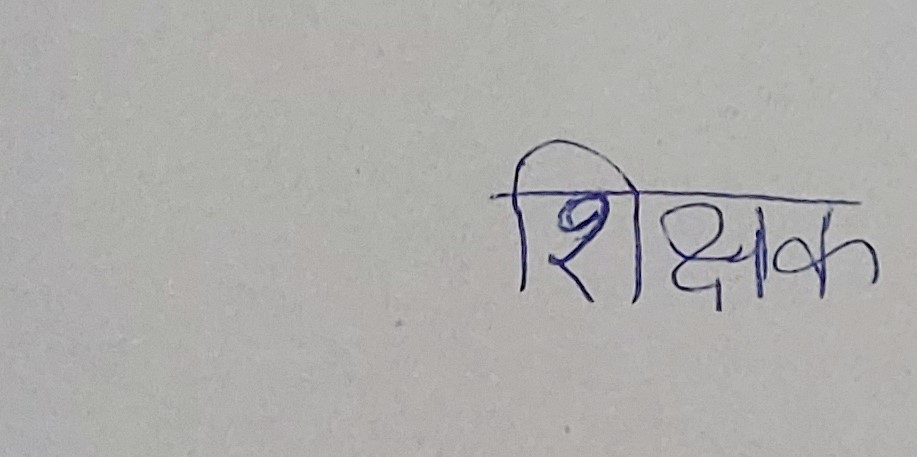 शिक्षक